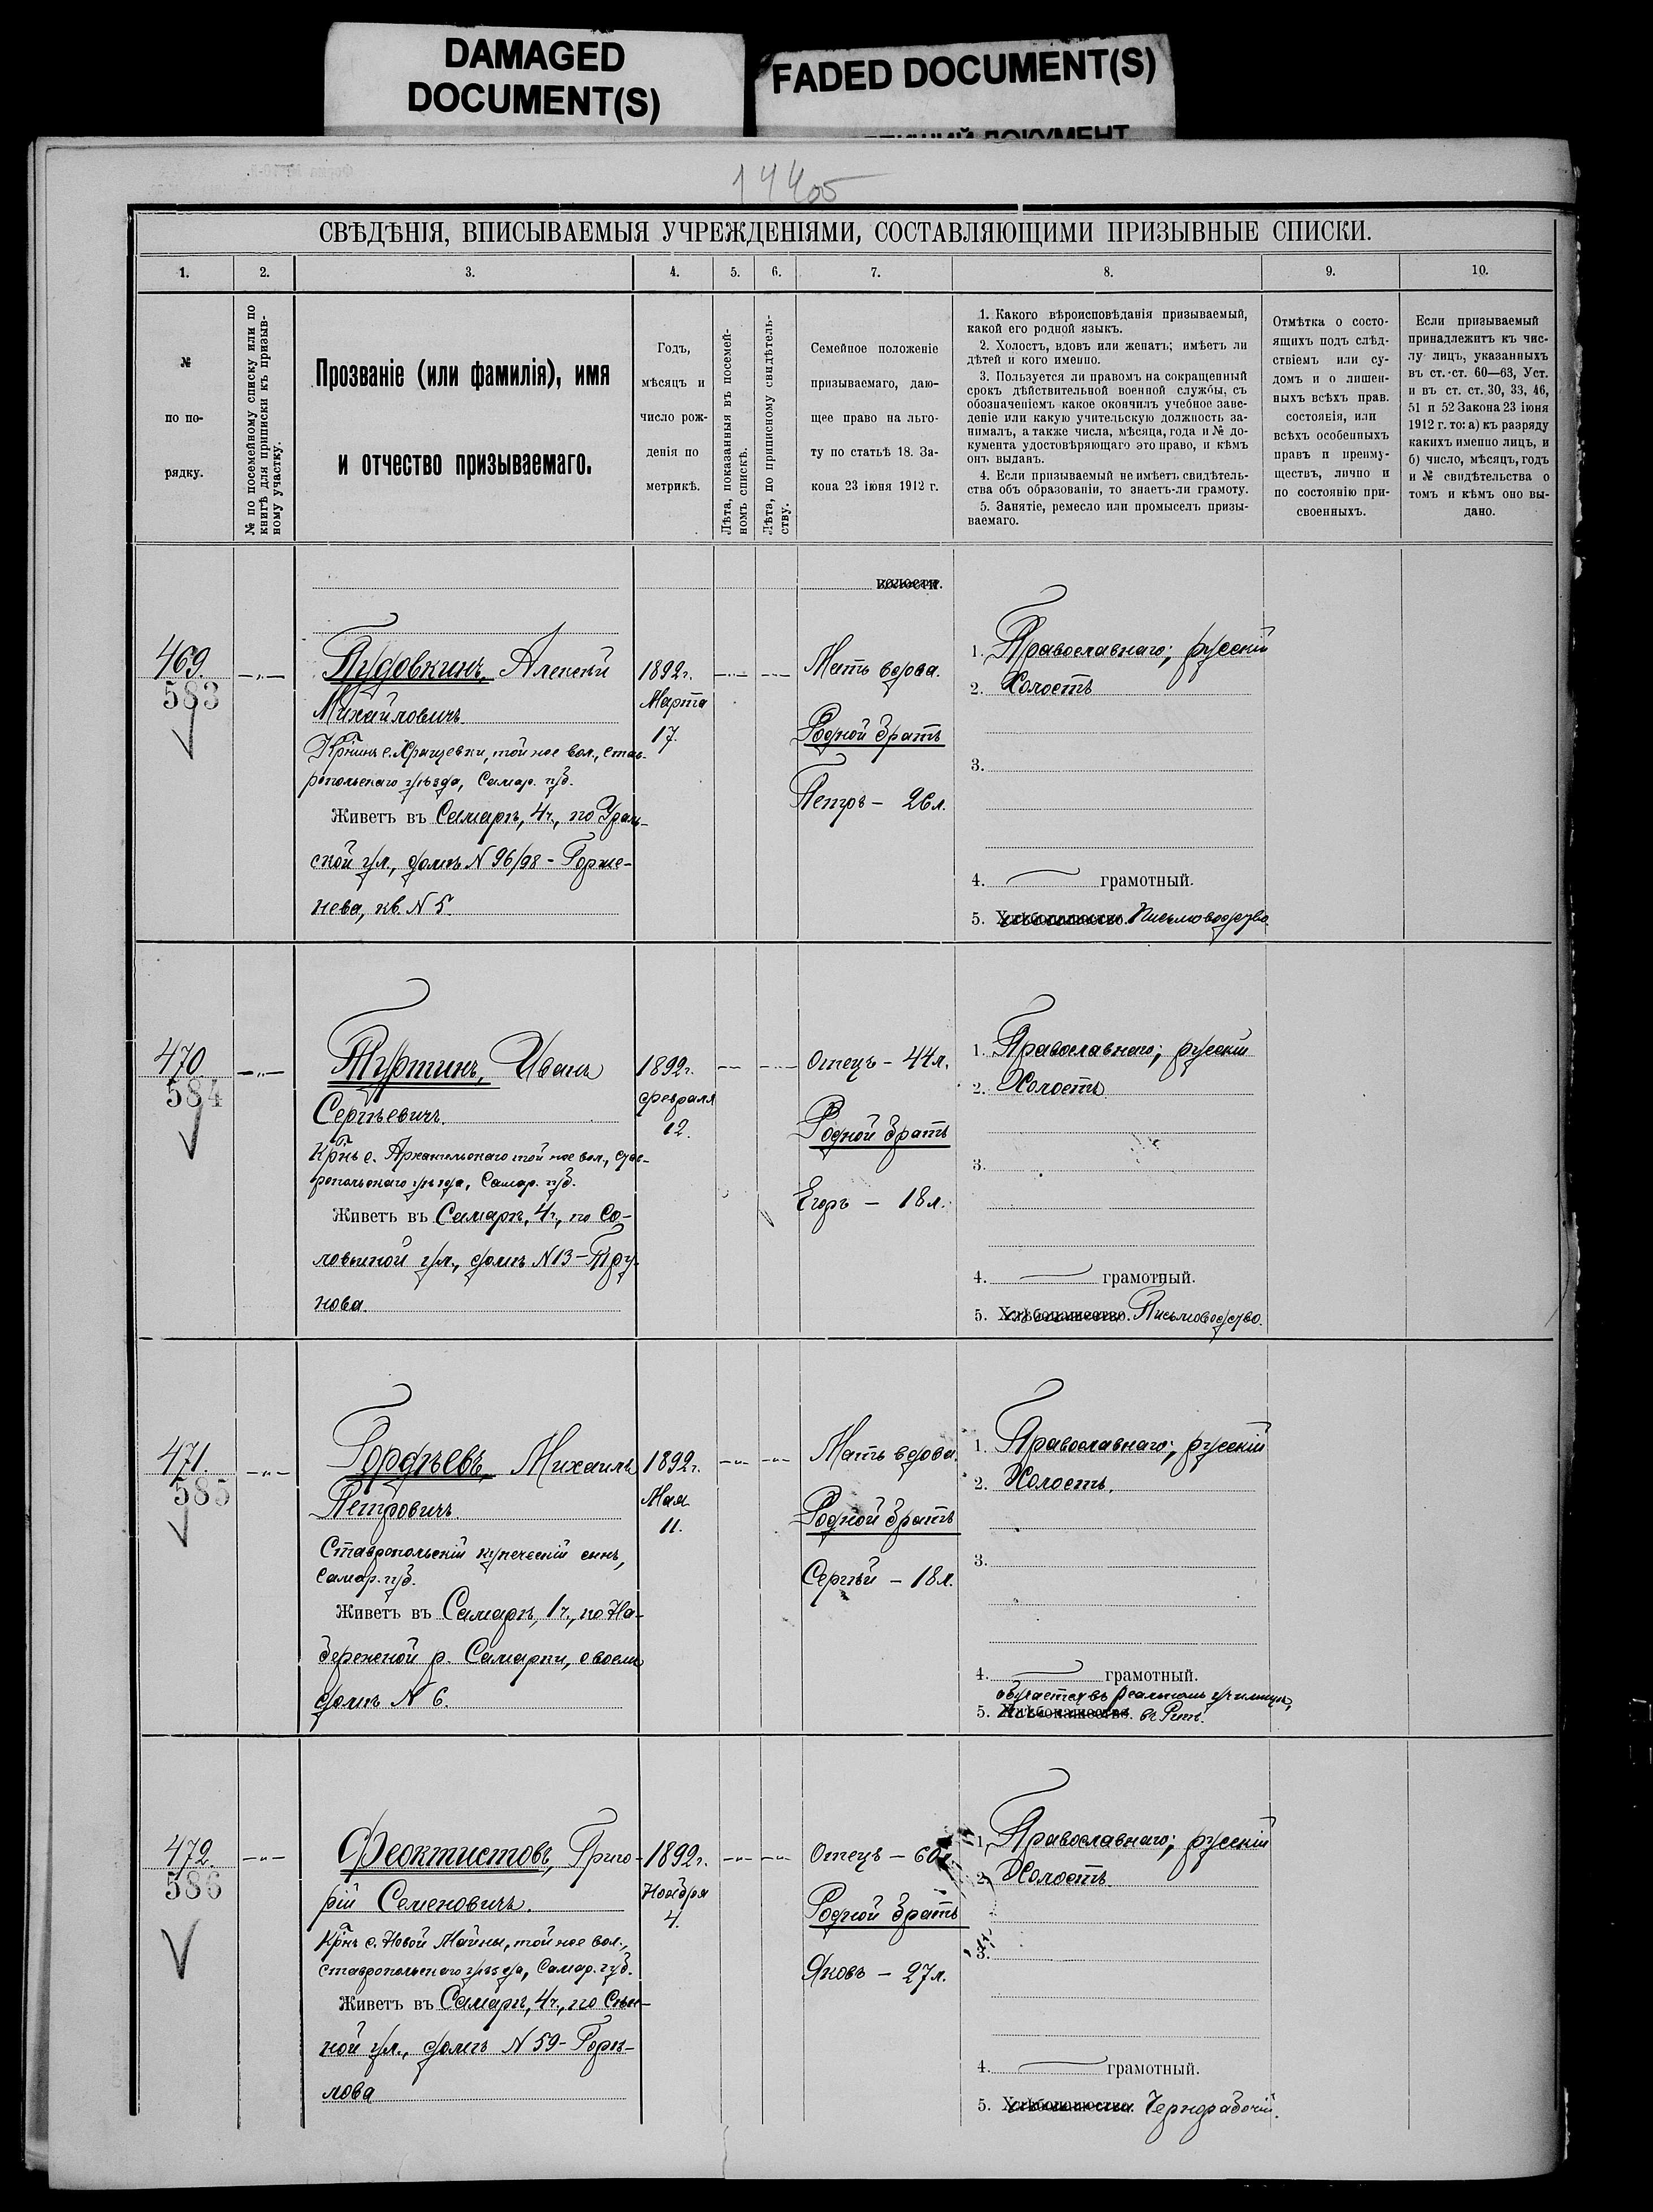 DAMAGED
DOCUMENT(S)
FADED DOCUMENT(S)
ДОКУМЕНТ
СВѢДѢНІЯ, ВПИСЫВАЕМЫЯ УЧРЕЖДЕНІЯМИ, СОСТАВЛЯЮЩИМИ ПРИЗЫВНЫЕ СПИСКИ.
1. 2. 3. 4. 5. 6. 7. 8. 9. 10.
№
по по-
рядку.
№ по посемейному списку или по
книгѣ для приписки къ призыв-
ному участку.
Прозваніе (или фамилія), имя
и отчество призываемаго.
Годъ,
мѣсяцъ и
число рож-
денія по
метрикѣ.
Лѣта, показанныя въ посемей-
номъ спискѣ.
Лѣта, по приписному свидѣтель-
ству.
Семейное положеніе
призываемаго, даю-
щее право на льго-
ту по статьѣ 18. За-
кона 23 іюня 1912 г.
1. Какого вѣроисповѣданія призываемый,
какой его родной языкъ.
2. Холостъ, вдовъ или женатъ; имѣетъ ли
дѣтей и кого именно.
3. Пользуется ли правомъ на сокращенный
срокъ дѣйствительной военной службы, съ
обозначеніемъ какое окончилъ учебное заве-
деніе или какую учительскую должность за-
нималъ, а также числа, мѣсяца, года и № до-
кумента удостовѣряющаго это право, и кѣмъ
онъ выданъ.
4. Если призываемый не имѣетъ свидѣтель-
ства объ образованіи, то знаетъ-ли грамоту.
5. Занятіе, ремесло или промыселъ призы-
ваемаго.
Отмѣтка о состо-
ящихъ подъ слѣд-
ствіемъ или су-
домъ и о лишен-
ныхъ всѣхъ прав.
состоянія, или
всѣхъ особенныхъ
правъ и преиму-
ществъ, лично и
по состоянію при-
своенныхъ.
Если призываемый
принадлежитъ къ чис-
лу лицъ, указанныхъ
въ ст. ст. 60—63, Уст.
и въ ст. ст. 30, 33, 46,
51 и 52 Закона 23 іюня
1912 г. то: а) къ разряду
какихъ именно лицъ, и
б) число, мѣсяцъ, годъ
и № свидѣтельства о
томъ и кѣмъ оно вы-
дано.
волости.
469.
583
Пудовкинъ Алексѣй
Михайловичъ
Кр-нинъ с. Хрящевки, той же вол., Став-
ропольскаго уѣзда, Самар. губ.
Живетъ въ Самарѣ, 4ч., по Ураль-
ской ул., домъ N 96/98 - Горше-
нева, кв. N 5.
1892г.
Марта
17.
Мать вдова.
Родной братъ
Петръ - 26 л.
1. Православнаго; русскій
2. Холостъ
3.
4. грамотный.
5. Хлѣбопашество. Письмоводство.
470
584
Туртинъ, Иванъ
Сергѣевичъ.
Кр-нъ с. Архангельскаго той же вол., Став-
ропольскаго уѣзда, Самар. губ.
Живетъ въ Самарѣ, 4ч., по Со-
ловьиной ул., домъ N 13 - Тру-
нова.
1892г.
Февраля
12.
Отецъ - 44 л.
Родной братъ
Егоръ - 18 л.
1. Православнаго; русскій
2. Холостъ
3.
4. грамотный.
5. Хлѣбопашество. Письмоводство.
471.
585
Гордѣевъ, Михаилъ
Петровичъ
Ставропольскій купеческій сынъ,
Самар. губ.
Живетъ въ Самарѣ, 1ч., по На-
бережной р. Самарки, въ своемъ
домѣ N 6.
1892г.
Мая
11.
Мать вдова.
Родной братъ
Сергѣй - 18 л.
1. Православнаго; русскій
2. Холостъ.
3.
4. грамотный.
обучается въ реальномъ училищѣ,
5. Хлѣбопашество.
472.
586
Феоктистовъ, Григо-
рій Семеновичъ.
Кр-нъ с. Новой Майны, той же вол.,
Ставропольскаго уѣзда, Самар. губ.
Живетъ въ Самарѣ, 4ч., по Сѣн-
ной ул., домъ N 59 - Горѣ-
лова
1892г.
Ноября
4.
Отецъ - 60
Родной братъ
Яковъ - 27 л.
1. Православнаго; русскій
2. Холостъ.
3.
4. грамотный.
5. Хлѣбопашество. Чернорабочій.